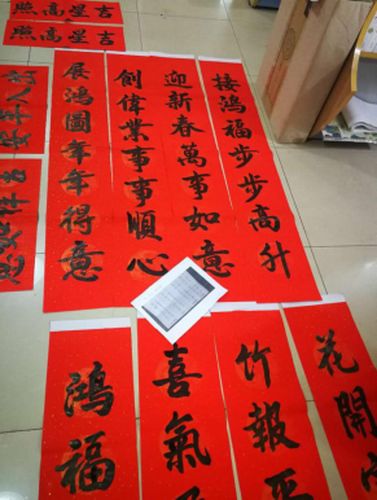 吉星高照
吉星高照
接鴻福步步高升
迎新春萬事如意
創偉業事事順心
展鴻圖年年得意
花開
竹報平
喜氣
鴻福